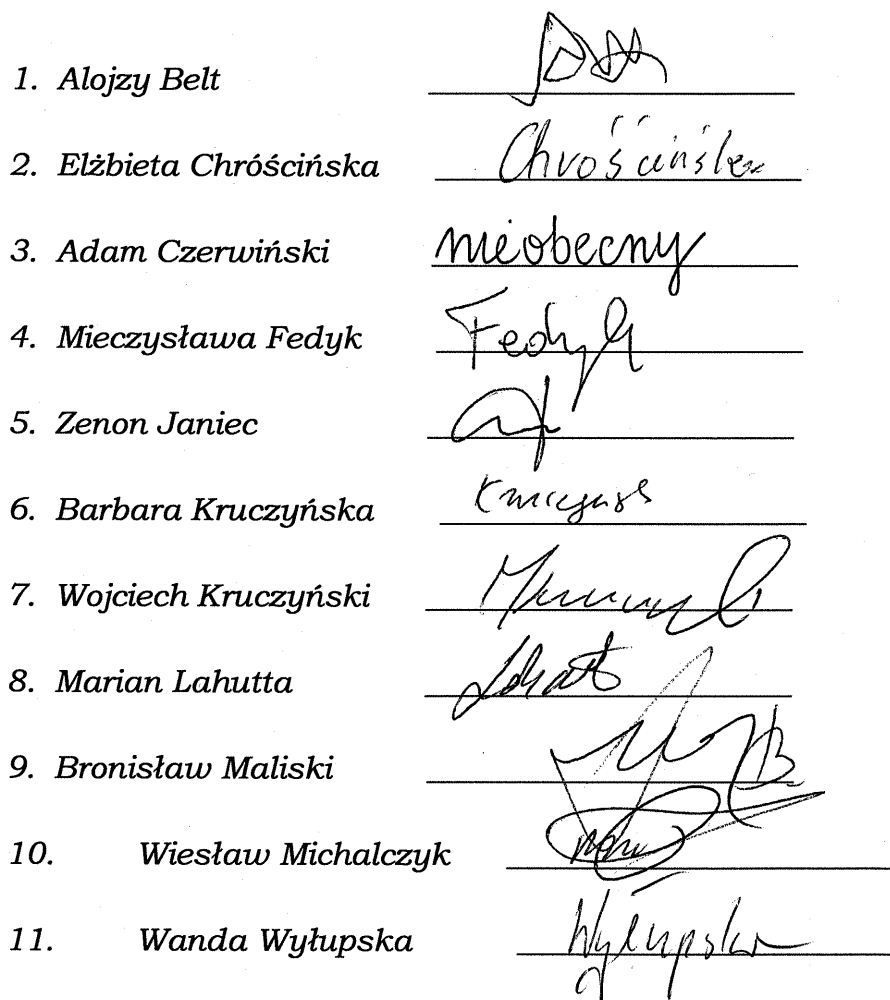 1. Alojzy Belt
2. Elżbieta Chróścińska Chróścińska
3. Adam Czerwiński nieobecny
4. Mieczysława Fedyk Fedyk
5. Zenon Janiec
6. Barbara Kruczyńska
7. Wojciech Kruczyński
8. Marian Lahutta
9. Bronisław Maliski
10. Wiesław Michalczyk
11. Wanda Wyłupska Wyłupska